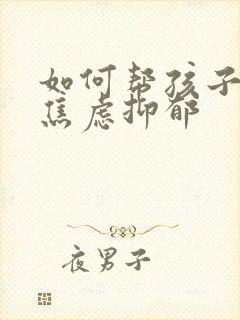 如何帮孩子
焦虑抑郁
夜男子